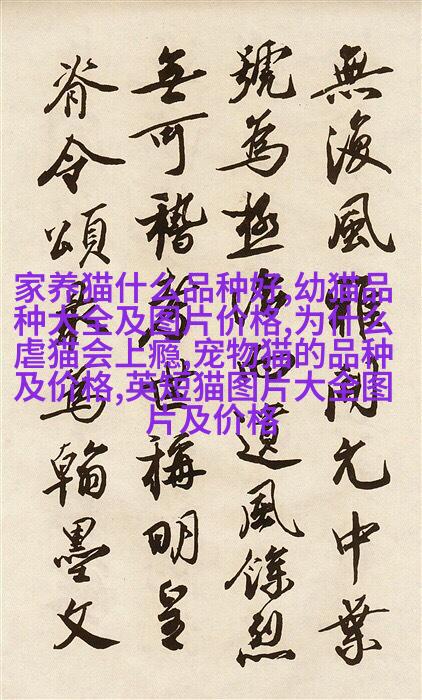 無復風開元中葉
號為極遺風餘烈
無可稽考世稱明皇
脊令頌最為翰墨文
家养猫什么品种好,幼猫品
种大全及图片价格,为什么
虐猫会上瘾,宠物猫的品种
及价格,英短猫图片大全图
片及价格